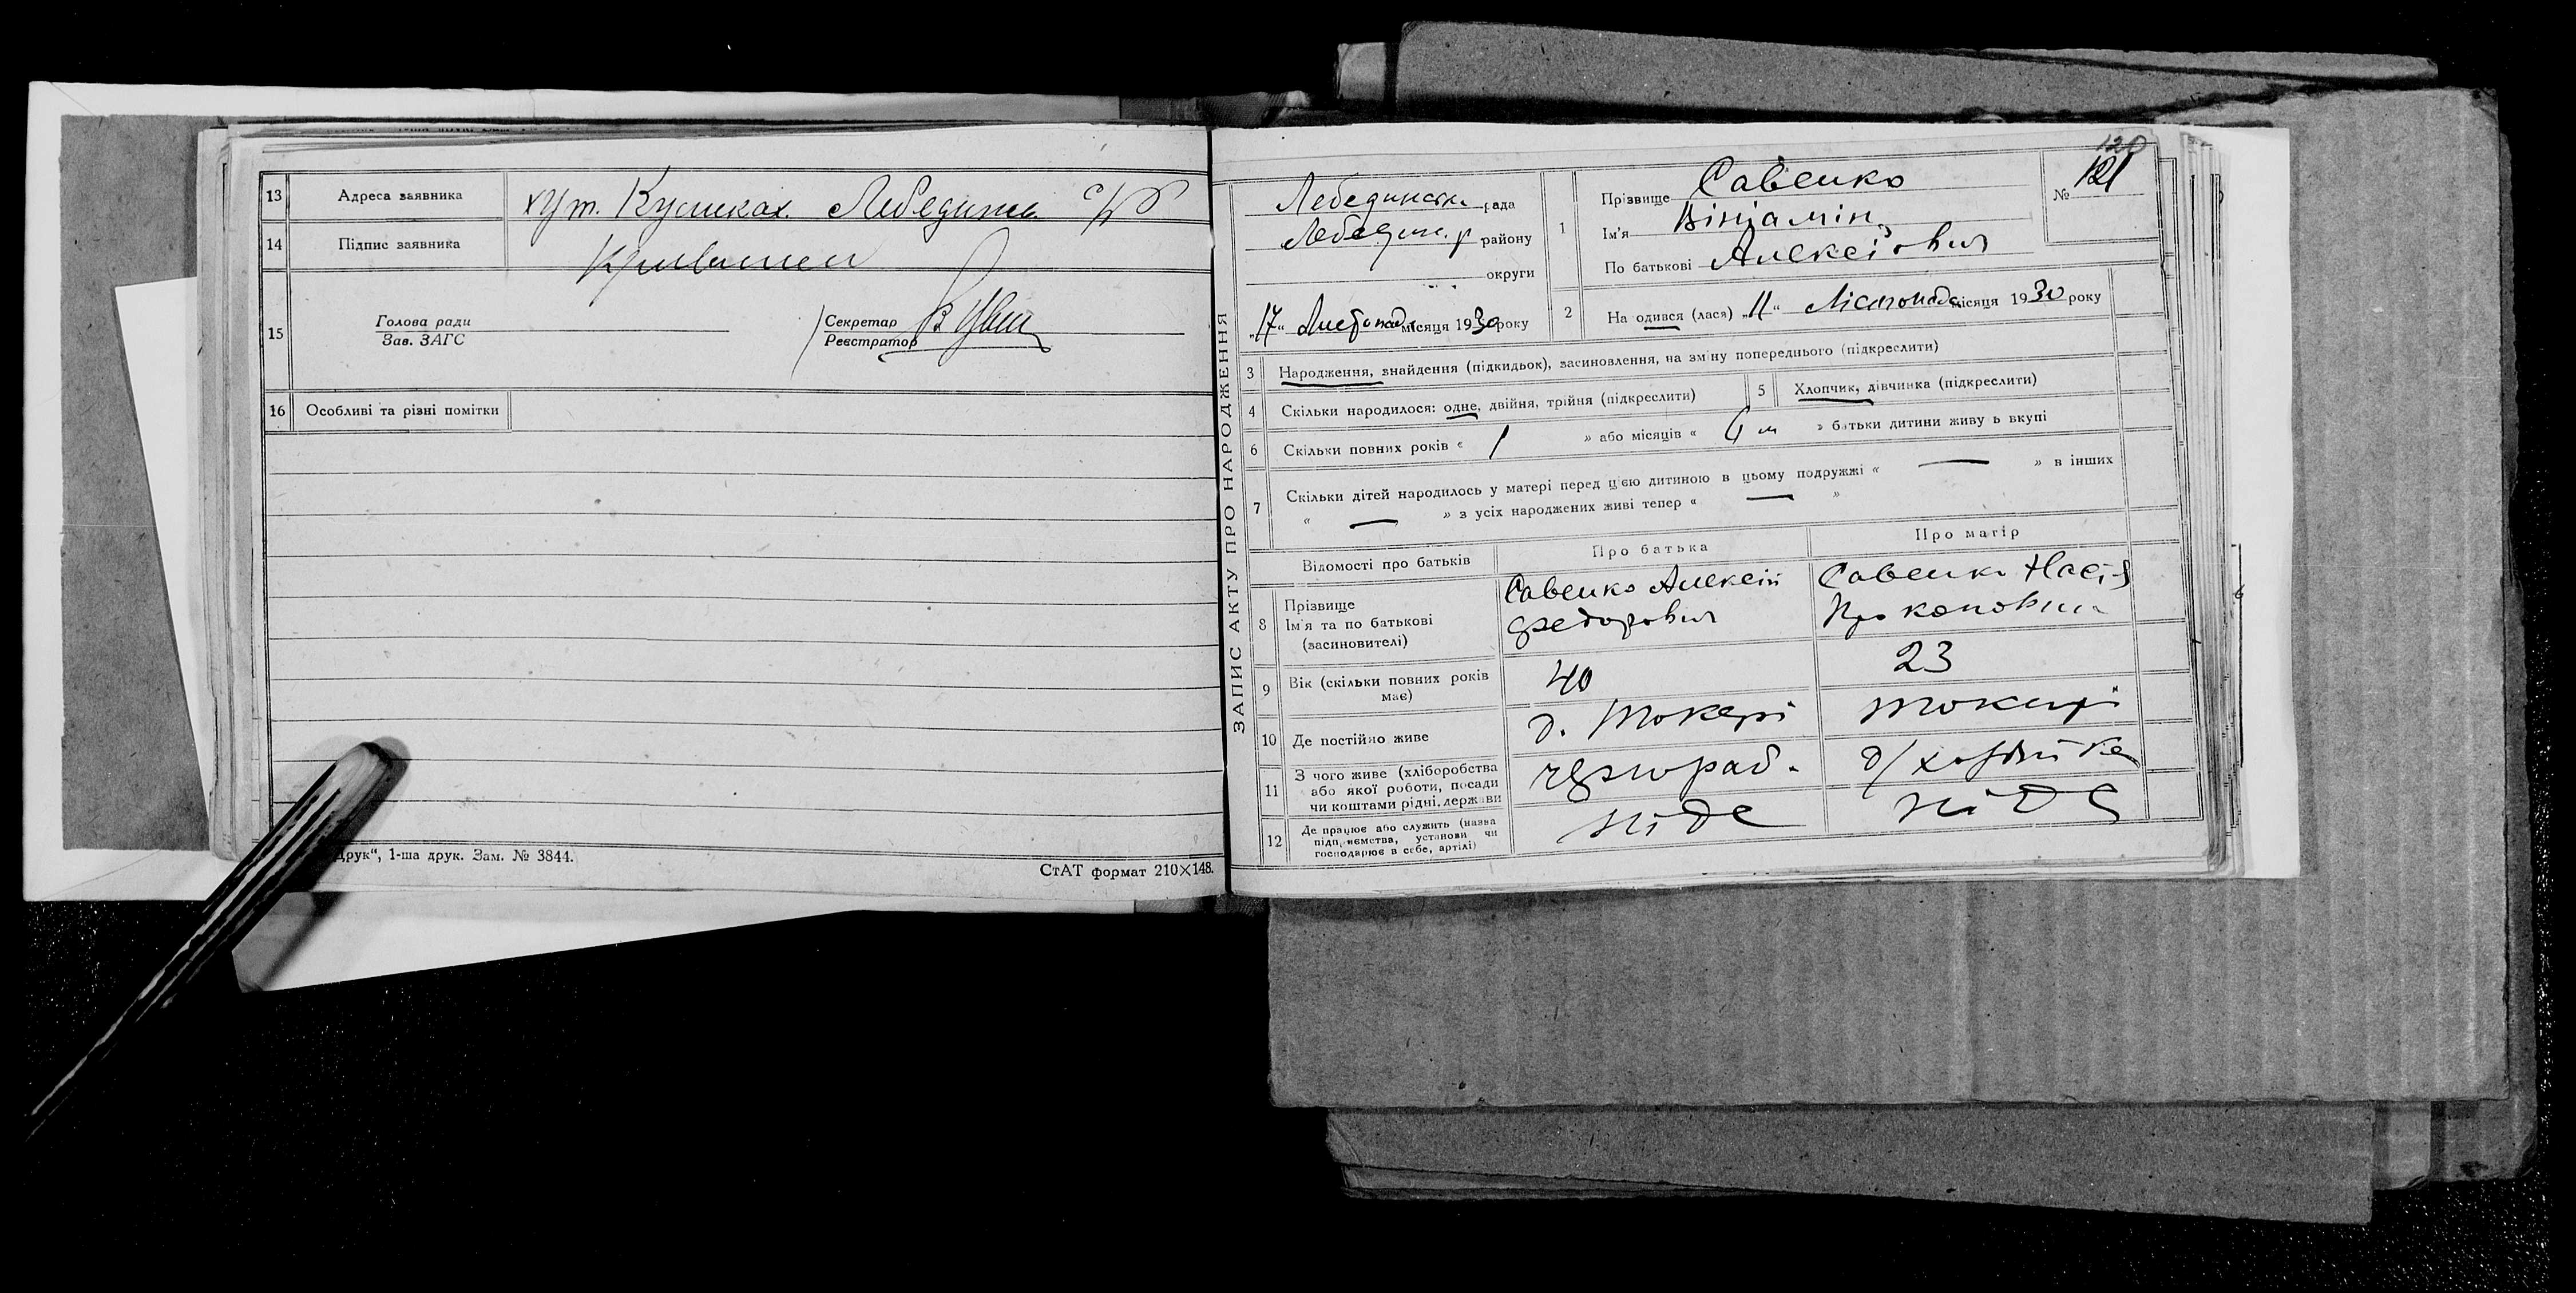 13 Адреса заявника хут. Лебединсь. с/р
14 Підпис заявника
15 Голова ради
Зав. ЗАГС
Секретар
Реєстратор
16 Особливі та різні помітки
Друк“, 1-ша друк. Зам. № 3844.
СтАТ формат 210×148.
ЗАПИС АКТУ ПРО НАРОДЖЕННЯ
120
Лебединськ. рада
Лебедин. р району
округи
„17“ Листопада місяця 1930 року
1 Прізвище Савенко
Ім'я Вініамін
По батькові Алексійович
№ 121
2 На одився (лася) „11“ Лістопада місяця 1930 року
3 Народження, знайдення (підкидьок), засиновлення, на зміну попереднього (підкреслити)
4 Скільки народилося: одне, двійня, трійня (підкреслити)
5 Хлопчик, дівчинка (підкреслити)
6 Скільки повних років « 1 » або місяців « м » батьки дитини живу ь вкупі
7 Скільки дітей народилось у матері перед цією дитиною в цьому подружжі « — » в інших
« — » з усіх народжених живі тепер « — »
Відомості про батьків Про батька Про матір
8 Прізвище
Ім'я та по батькові
(засиновителі)
Савенко Алексій
Федорович
Савенко Настя
9 Вік (скільки повних років має) 40 23
10 Де постійно живе с. Токарі Токарі
11 З чого живе (хліборобства
або якої роботи, посади
чи коштами рідні, держави
чорнораб. д/хазяйка
12 Де працює або служить (назва
підприємства, установи чи
господарює в себе, артілі)
ніде ніде